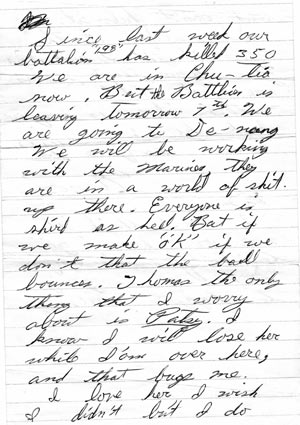 Since last week our
battalion "198" has killed 350
We are in Chu-lia
now. But the Battlion is
leaving tomorrow 7th. We
are going to De-nang
We will be working
with the Marines, they
are in a world of shit.
up there. Everyone is
as hell. But if
we make "OK" if we
don't that the ball
bounces. Thomas the only
thing that I worry
about is Patsy. I
know I will lose her
while I'am over here,
and that bugs me.
I love her I wish
I didn't but I do